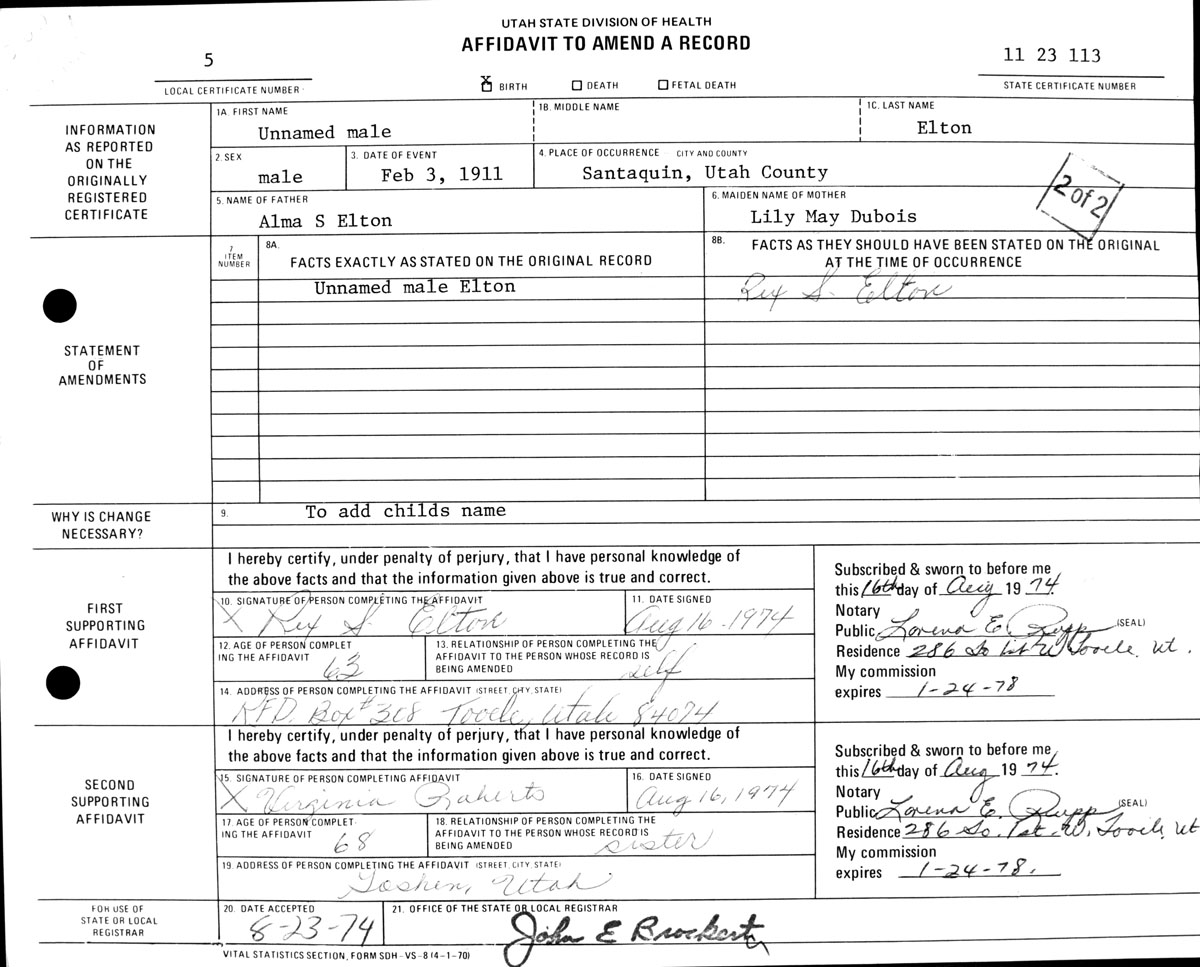 UTAH STATE DIVISION OF HEALTH
AFFIDAVIT TO AMEND A RECORD
5
LOCAL CERTIFICATE NUMBER
X BIRTH DEATH FETAL DEATH
11 23 113
STATE CERTIFICATE NUMBER
INFORMATION
AS REPORTED
ON THE
ORIGINALLY
REGISTERED
CERTIFICATE
1A. FIRST NAME
Unnamed male
1B. MIDDLE NAME
1C. LAST NAME
Elton
2. SEX
male
3. DATE OF EVENT
Feb 3, 1911
4. PLACE OF OCCURRENCE CITY AND COUNTY
Santaquin, Utah County
2 of 2
5. NAME OF FATHER
Alma S Elton
6. MAIDEN NAME OF MOTHER
Lily May Dubois
STATEMENT
OF
AMENDMENTS
7
ITEM
NUMBER
8A.
FACTS EXACTLY AS STATED ON THE ORIGINAL RECORD
8B. FACTS AS THEY SHOULD HAVE BEEN STATED ON THE ORIGINAL
AT THE TIME OF OCCURRENCE
Unnamed male Elton
Rex S. Elton
WHY IS CHANGE
NECESSARY?
9. To add childs name
FIRST
SUPPORTING
AFFIDAVIT
I hereby certify, under penalty of perjury, that I have personal knowledge of
the above facts and that the information given above is true and correct.
10. SIGNATURE OF PERSON COMPLETING THE AFFIDAVIT
X Rex S. Elton
11. DATE SIGNED
Aug 16-1974
12. AGE OF PERSON COMPLET
ING THE AFFIDAVIT
63
13. RELATIONSHIP OF PERSON COMPLETING THE
AFFIDAVIT TO THE PERSON WHOSE RECORD IS
BEING AMENDED
self
14. ADDRESS OF PERSON COMPLETING THE AFFIDAVIT (STREET, CITY, STATE)
RFD. Box #308 Tooele, Utah 84074
Subscribed & sworn to before me
this 16th day of Aug 19 74.
Notary
Public Lorena E. Rupp (SEAL)
Residence 286 So 1st W Tooele, Ut.
My commission
expires 1-24-78
SECOND
SUPPORTING
AFFIDAVIT
I hereby certify, under penalty of perjury, that I have personal knowledge of
the above facts and that the information given above is true and correct.
15. SIGNATURE OF PERSON COMPLETING AFFIDAVIT
X Virginia Roberts
16. DATE SIGNED
Aug 16, 1974
17. AGE OF PERSON COMPLET-
ING THE AFFIDAVIT
68
18. RELATIONSHIP OF PERSON COMPLETING THE
AFFIDAVIT TO THE PERSON WHOSE RECORD IS
BEING AMENDED
sister
19. ADDRESS OF PERSON COMPLETING THE AFFIDAVIT (STREET, CITY, STATE)
Goshen, Utah
Subscribed & sworn to before me
this 16th day of Aug 19 74.
Notary
Public Lorena E. Rupp (SEAL)
Residence 286 So. 1st. W, Tooele, Ut
My commission
expires 1-24-78.
FOR USE OF
STATE OR LOCAL
REGISTRAR
20. DATE ACCEPTED
8-23-74
21. OFFICE OF THE STATE OR LOCAL REGISTRAR
John E Brockert
VITAL STATISTICS SECTION, FORM SDH-VS-8 (4-1-70)